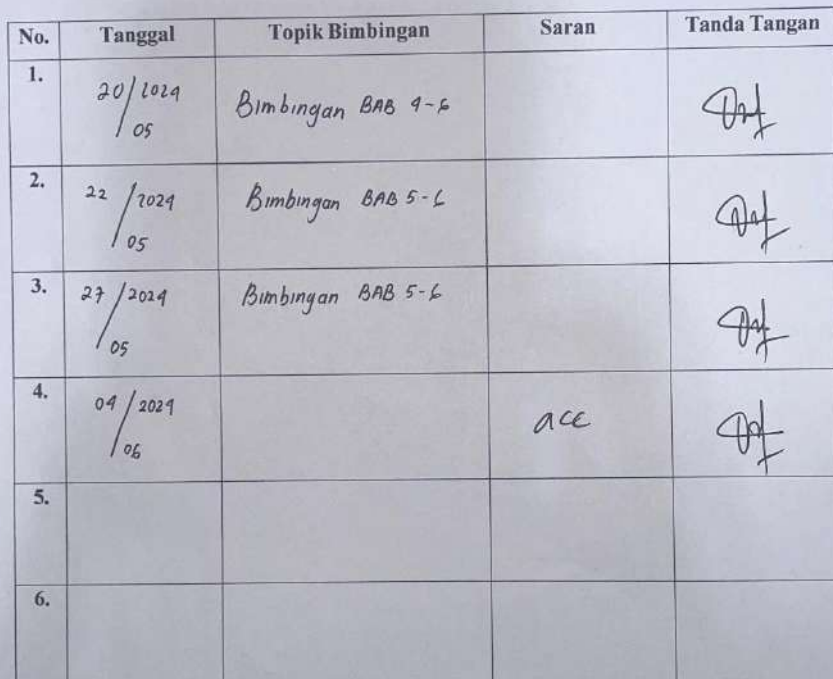 No. Tanggal Topik Bimbingan Saran Tanda Tangan
1. 20/2024 Bimbingan BAB 4-6
05
2. 22/2024 Bimbingan BAB 5-6
05
3. 27/2024 Bimbingan BAB 5-6
05
4. 04/2024 acc
06
5.
6.